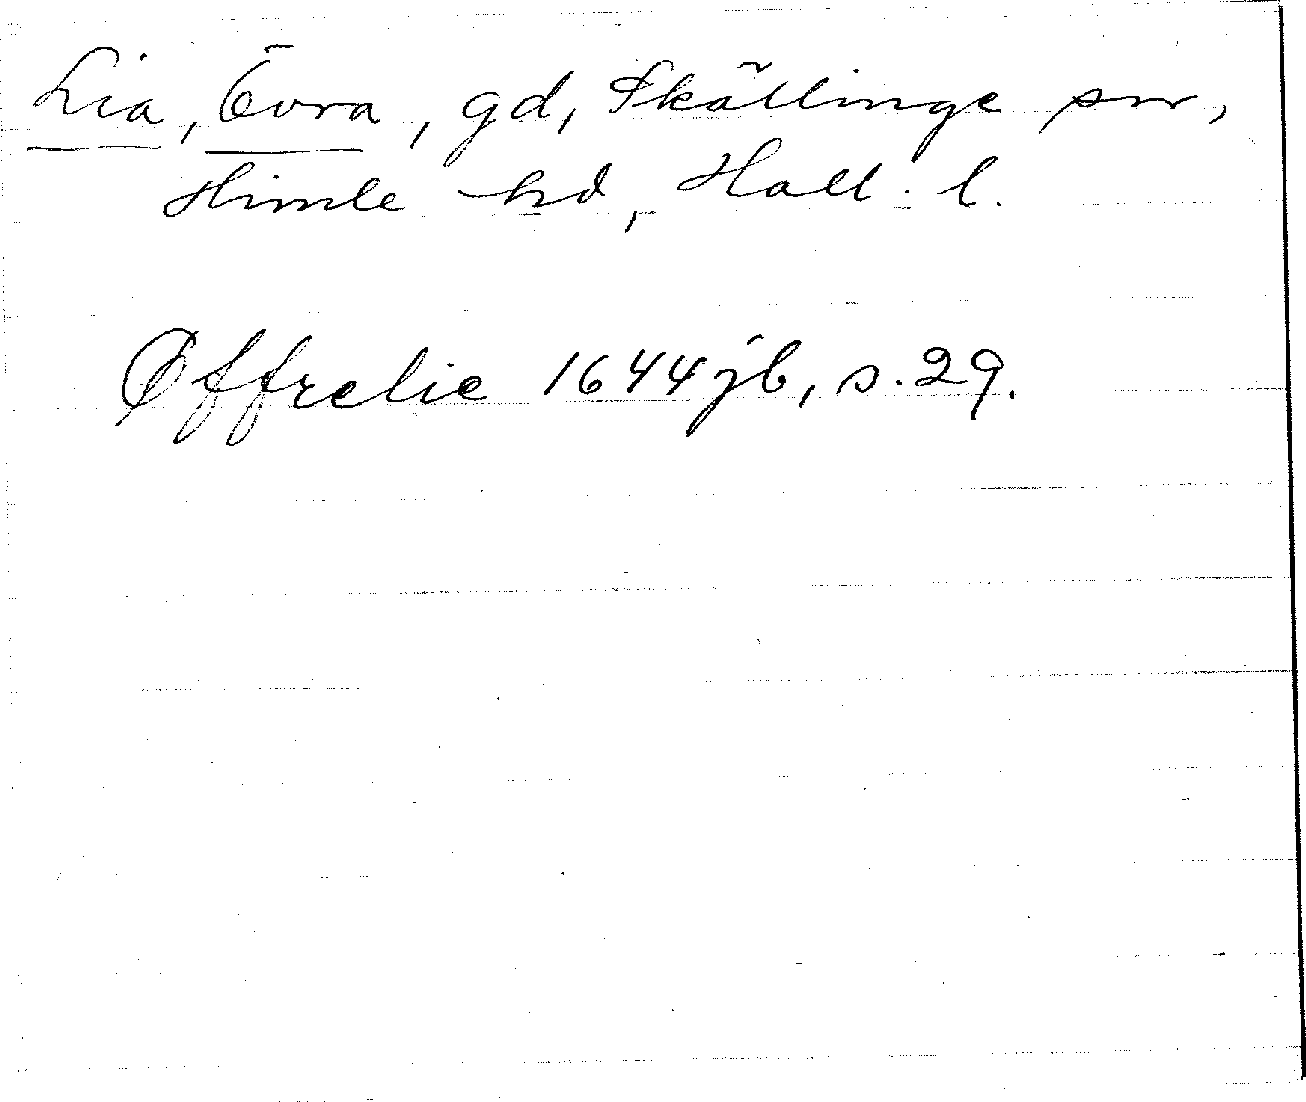 Lia, Övra, gd, Skällinge sn,
Himle hd, Hall. l.
Øffrelie 1644 jb, s. 29.